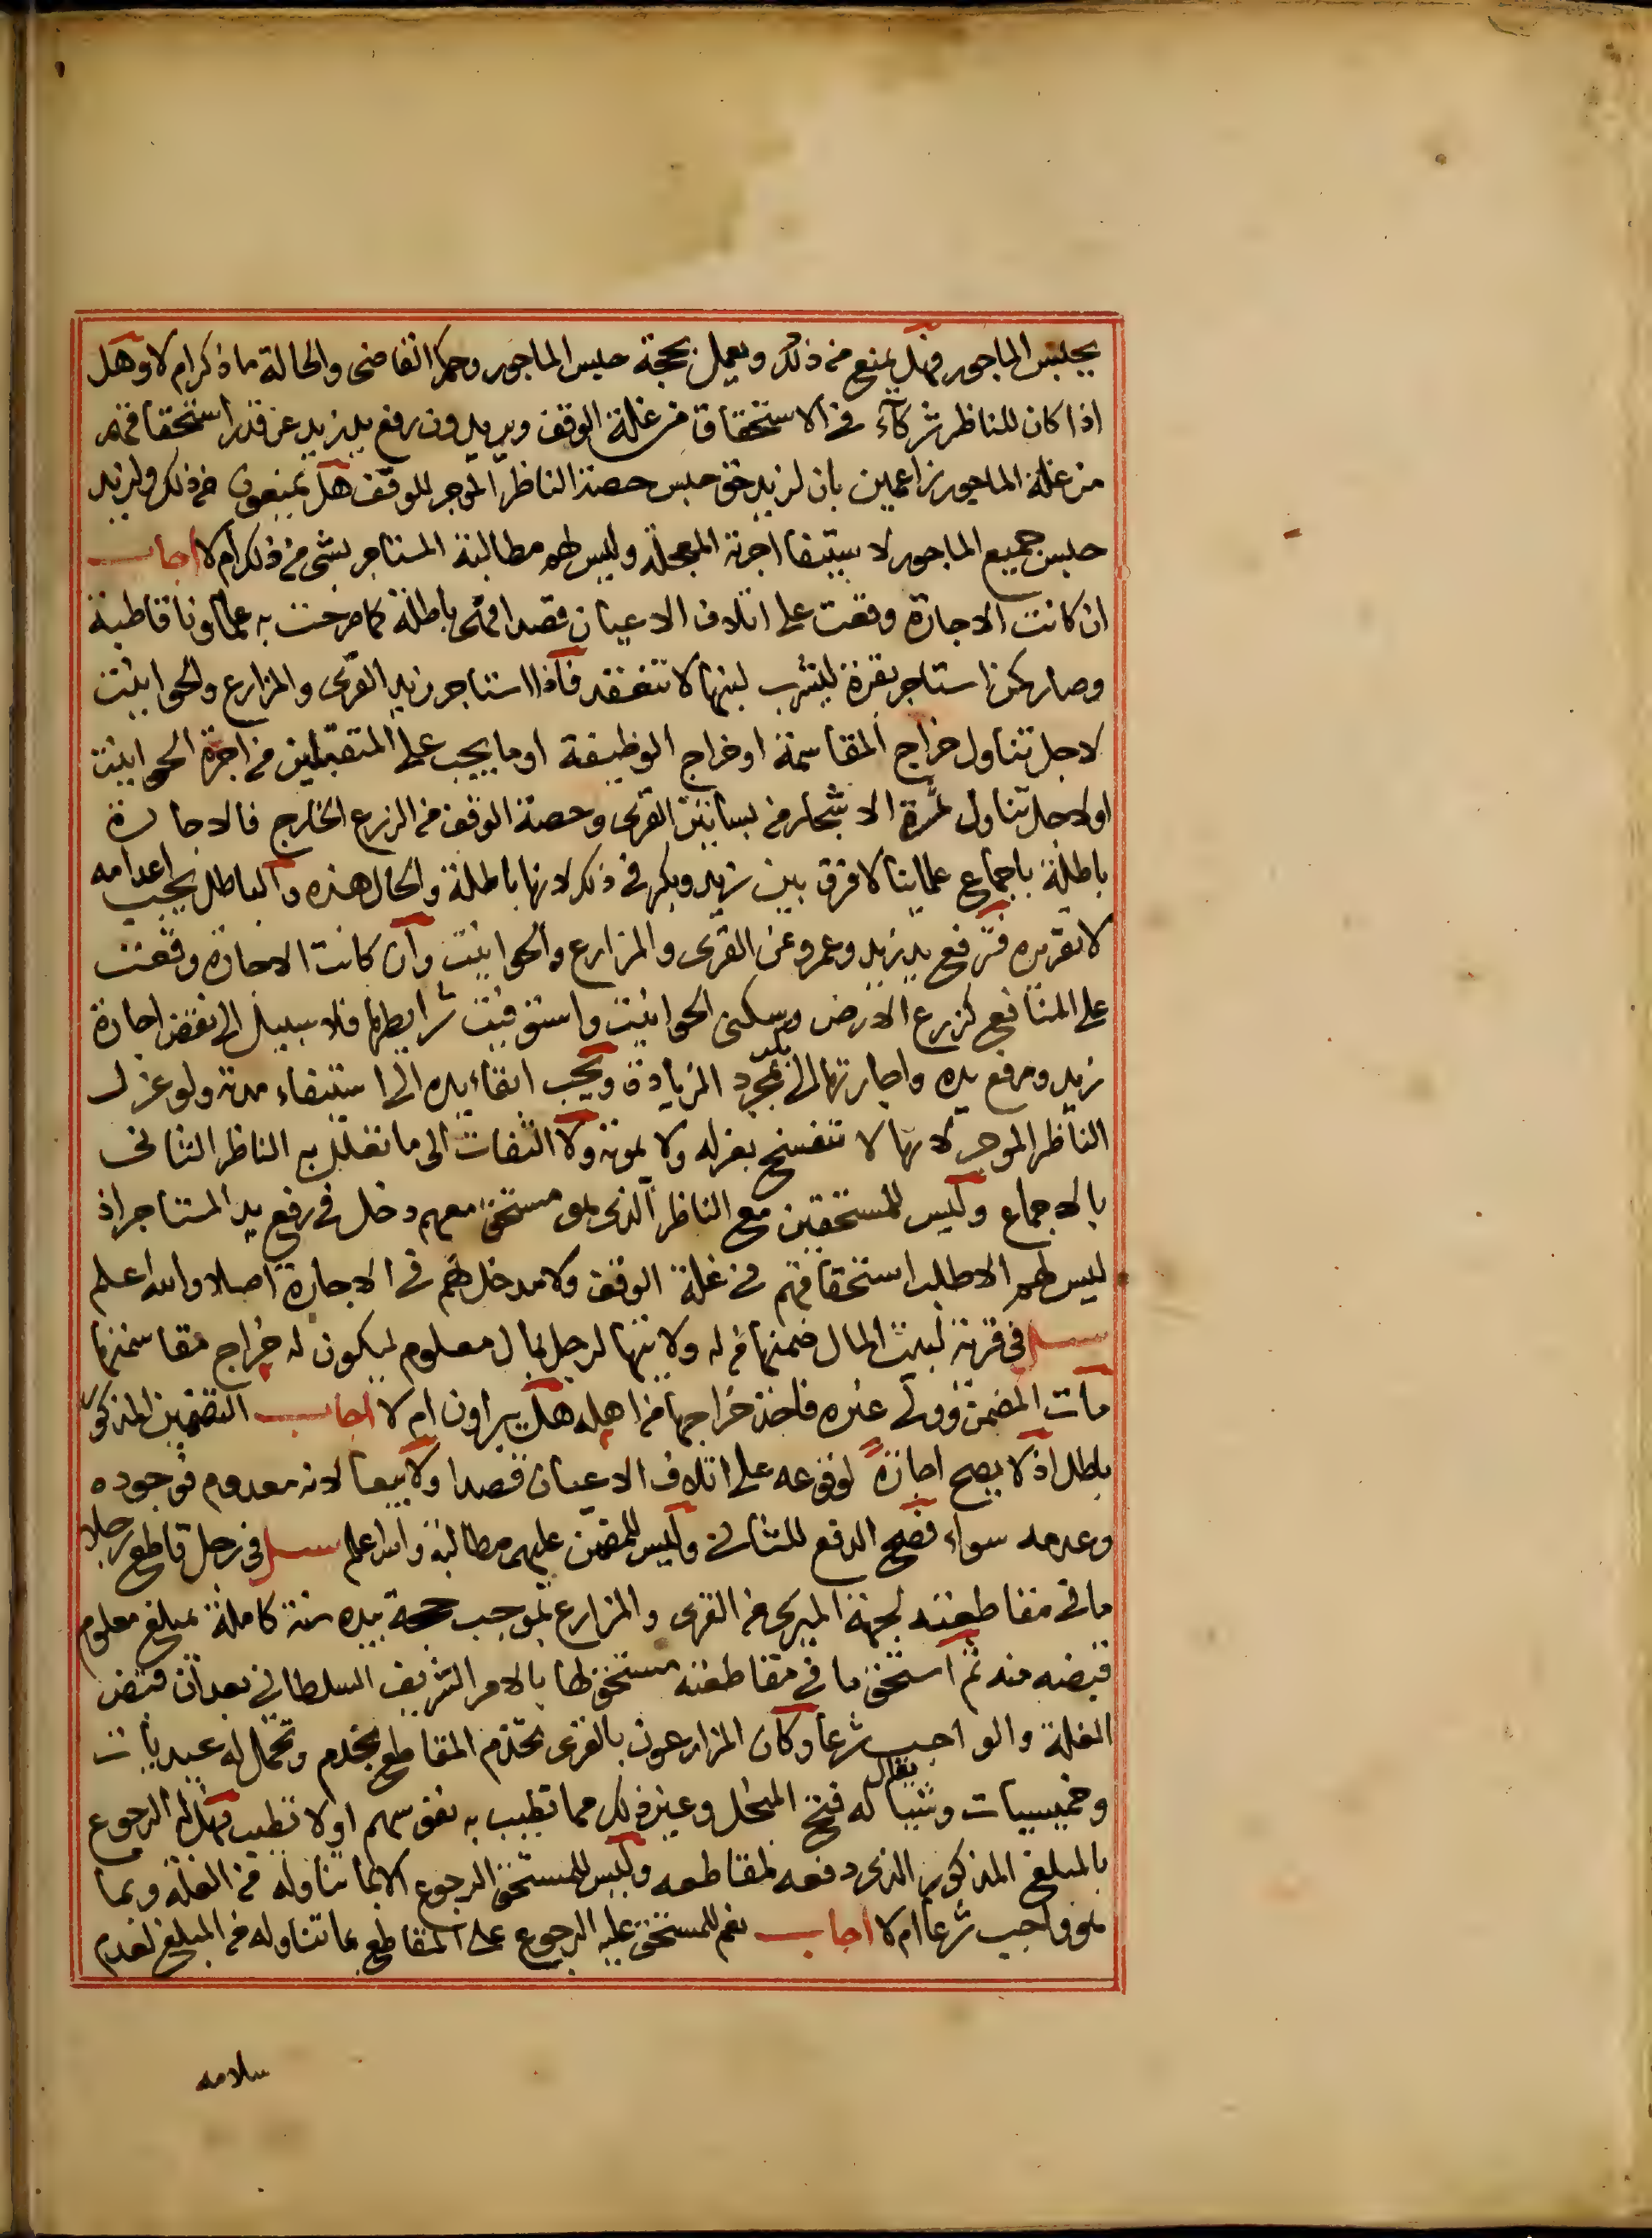 يحبس الماجور فهل يمنع من ذلك ويعمل بحجة حبس الماجور وحكم القاضي والحالة ما ذكر ام لا وهل
اذا كان للناظر شركآء في الاستحقاق من غلة الوقف ويريدون رفع يد زيد عن قدر استحقاقهم
من غلة الماجور زاعمين بان لزيد حق حبس حصة الناظر الموجر للوقف هل يمنعون من ذلك ولزيد
حبس جميع الماجور لاستيفا اجرته المعجلة وليس لهم مطالبة المستاجر بشي من ذلك ام لا اجاب
ان كانت الاجازة وقعت على اتلاف الاعيان قصدا فهى باطلة كما صرحت به علماونا قاطبة
وصار كمن استاجر بقرة ليشرب لبنها لا تنعقد فاذا استاجر زيد القرى والمزارع والحوانيت
لاجل تناول خراج المقاسمة او خراج الوظيفة او ما يجب على المتقبلين من اجرة الحوانيت
او لاجل تناول ثمرة الاشجار من بساتين القرى وحصة الوقف من الزرع الخارج فالاجارة
باطلة باجماع علمائنا لا فرق بين زيد وبكر في ذلك لانها باطلة والحال هذه والباطل يجب اعدامه
لا تقريره فترفع يد زيد وعمرو عن القرى والمزارع والحوانيت وان كانت الاجازة وقعت
على المنافع كزرع الارض وسكنى الحوانيت واستوفيت شرايطها فلا سبيل الى نقض اجارة
زيد ورفع يده واجارتها الى بكر بمجرد الزيادة ويجب ابقاء يده الى استيفاء مدته ولو عزل
الناظر الموجر لانها لا تنفسخ بعزله ولا بموته ولا التفات الى ما تعلل به الناظر الثانى
بالاجماع وليس للمستحقين مع الناظر الذى هو مستحق معهم دخل في رفع يد المستاجر اذ
ليس لهم الا طلب استحقاقهم في غلة الوقف ولا مدخل لهم في الاجارة اصلا والله اعلم
سيل في قرية لبيت المال ضمنها من له ولايتها لرجل بمال معلوم ليكون له خراج مقاسمتها
مات المضمن وولى غيره فاخذ خراجها من اهله هل يبراون ام لا اجاب التضمين المذكور
باطل اذ لا يصح اجازةً لوقوعه على اتلاف الاعيان قصدا ولا بيعا لانه معدوم فوجوده
وعدمه سواء فصح الدفع للثانى وليس للمضمن عليهم مطالبة والله اعلم سيل في رجل قاطع رجلا
ما في مقاطعته لجهة الميرى من القرى والمزارع بموجب حجة بيده سنة كاملة بمبلغ معلوم
قبضه منه ثم استحق ما في مقاطعته مستحق لها بالامر الشريف السلطاني بعد ان قبض
الغلة والواجب شرعا وكان المزارعون بالقرى تخدم المقاطع بخدم وتحمل له عيديات
وخميسيات وشيا يقال له فتح المنخل وغير ذلك مما تطيب به نفوسهم او لا تطيب فهل له الرجوع
بالمبلغ المذكور الذى دفعه لمقاطعه وليس للمستحق الرجوع الا بما تناوله من الغلة وبما
هو واجب شرعا ام لا اجاب نعم للمستحق عليه الرجوع على المقاطع بما تناوله من المبلغ لعدم
سلامه